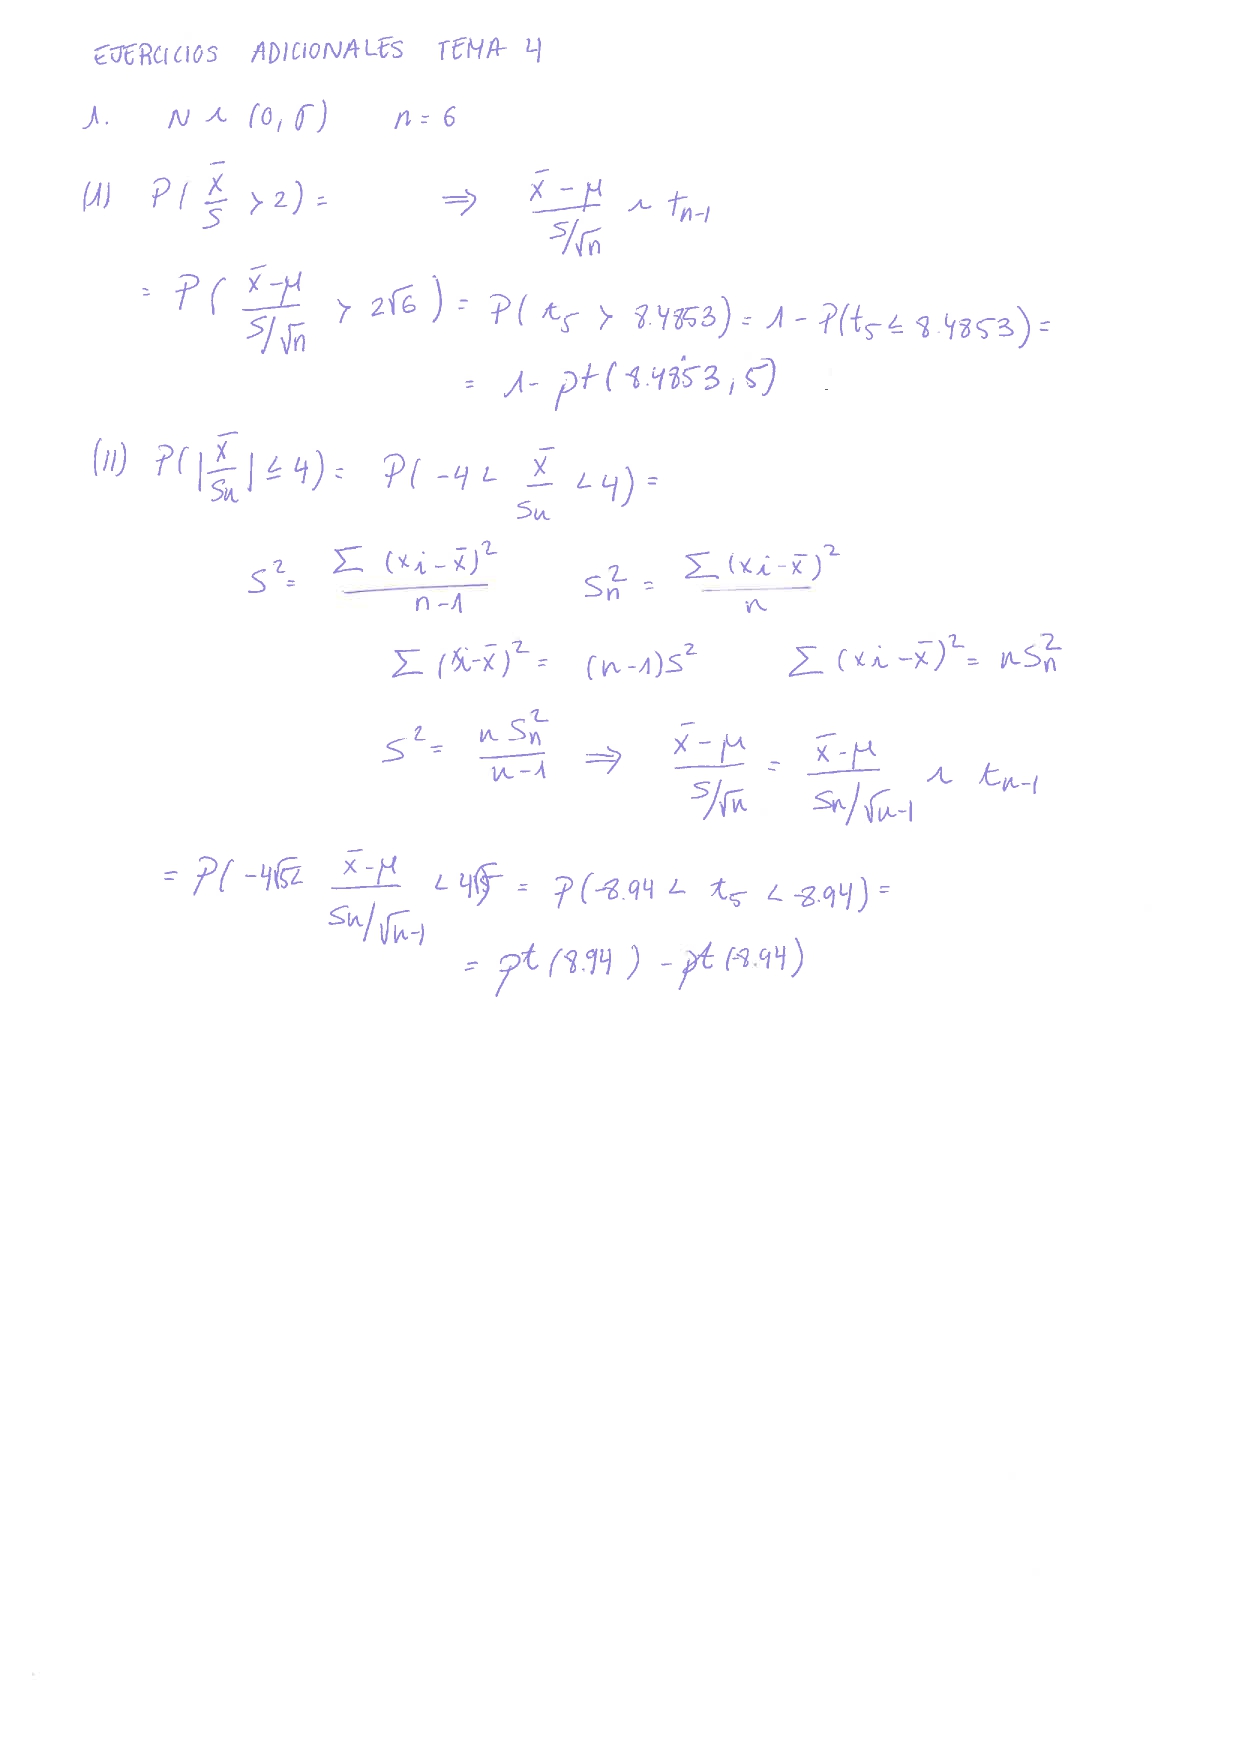 EJERCICIOS ADICIONALES TEMA 4
1. N ~ (0, σ) n = 6
(I) P( x̄/S > 2) = ⇒ (x̄ - μ)/(S/√n) ~ t_{n-1}
= P( (x̄ - μ)/(S/√n) > 2√6 ) = P( t_5 > 8.4853) = 1 - P(t_5 ≤ 8.4853) =
= 1 - pt(8.4853, 5)
(II) P(|x̄/Sn| ≤ 4) = P( -4 < x̄/Sn < 4) =
S² = Σ (xi - x̄)²/(n-1) Sn² = Σ (xi - x̄)²/n
Σ (xi - x̄)² = (n-1)S² Σ (xi - x̄)² = nSn²
S² = n Sn²/(n-1) ⇒ (x̄ - μ)/(S/√n) = (x̄ - μ)/(Sn/√n-1) ~ t_{n-1}
= P( -4√5 < (x̄ - μ)/(Sn/√n-1) < 4√5 = P(-8.94 < t_5 < -8.94) =
= pt (8.94) - pt (-8.94)